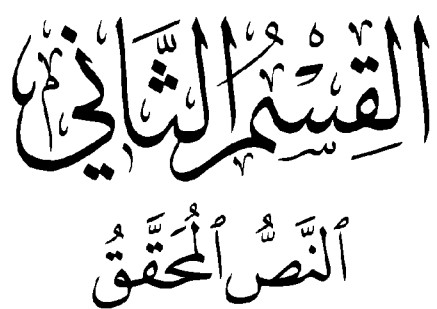 القِسْمُ الثَّانِي
ٱلنَّصُّ ٱلْمُحَقَّقُ